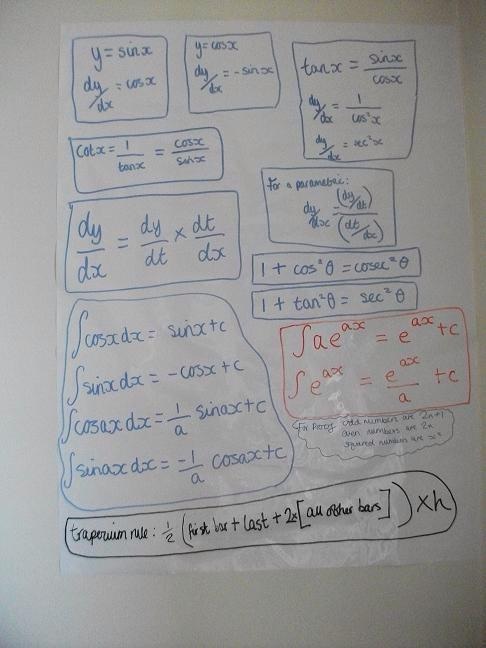 y = sinx
dy/dx = cosx
y = cosx
dy/dx = -sinx
tanx = sinx/cosx
dy/dx = 1/cos²x
dy/dx = sec²x
cotx = 1/tanx = cosx/sinx
For a parametric:
dy/dx = (dy/dt)/(dt/dx)
dy/dx = dy/dt × dt/dx
1 + cos²θ = cosec²θ
1 + tan²θ = sec²θ
∫cosx dx = sinx + c
∫sinx dx = -cosx + c
∫cosax dx = 1/a sinax + c
∫sinax dx = -1/a cosax + c
∫ae^ax = e^ax + c
∫e^ax = e^ax/a + c
For Proof: odd numbers are 2n+1
even numbers are 2n
squared numbers are x²
trapezium rule: 1/2 (first bar + last + 2x[all other bars]) × h